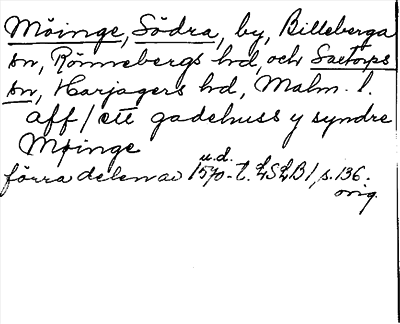 Möinge, Södra, by, Billeberga
sn, Rönnebergs hd, och Saxtorps
sn, Harjagers hd, Malm. l.
aff / ett gadehuss y syndre
Møinge
u.d.
förra delen av 1570-t. LSLB 1, s. 136.
orig.